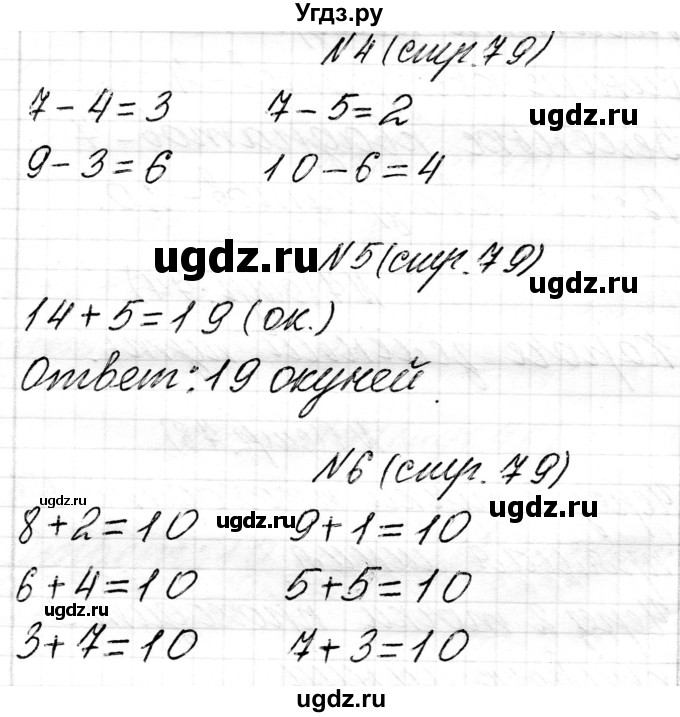 Угдз.ру
№4 (стр.79)
7-4=3 7-5=2
9-3=6 10-6=4
ugdz.ru
ugdz.ru
№5 (стр.79)
ugdz.ru
14+5=19 (ок.)
Ответ: 19 окуней.
№6 (стр.79)
ugdz.ru ugdz.ru ugdz.ru
8+2=10 9+1=10
6+4=10 5+5=10
ugdz.ru
3+7=10 7+3=10
ugdz.ru